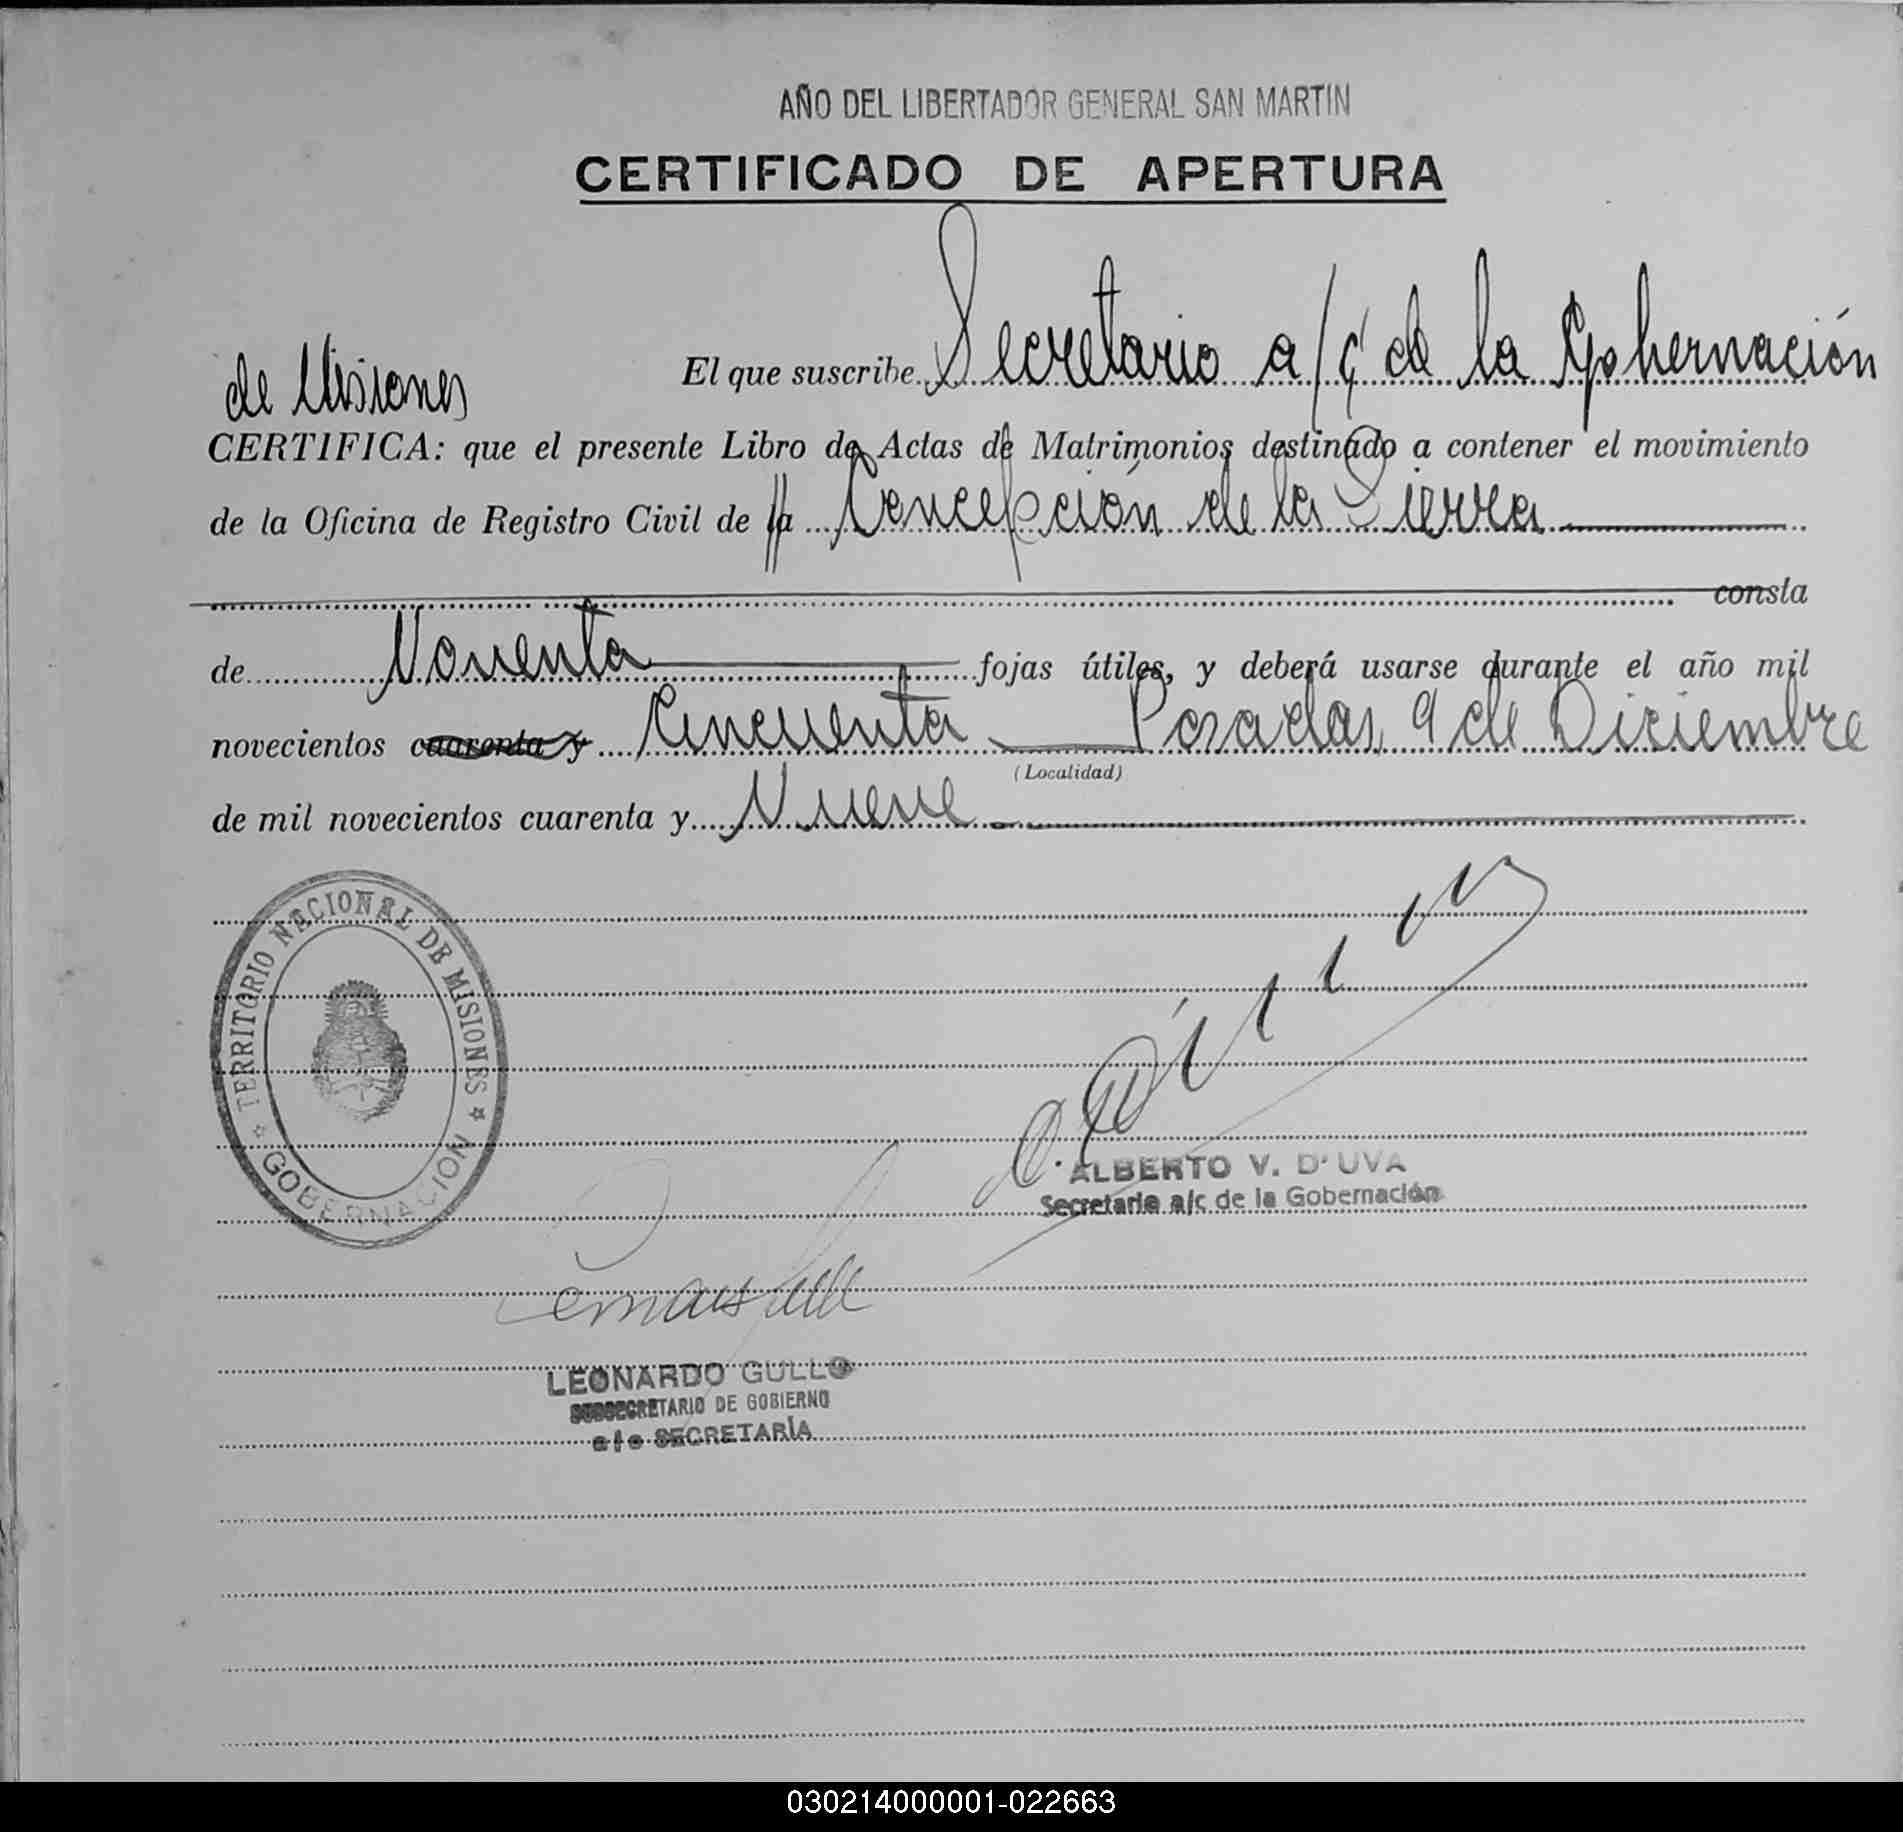 AÑO DEL LIBERTADOR GENERAL SAN MARTIN
CERTIFICADO DE APERTURA
El que suscribe Secretario a/c de la Gobernación
de Misiones
CERTIFICA: que el presente Libro de Actas de Matrimonios destinado a contener el movimiento
de la Oficina de Registro Civil de la Concepción de la Sierra
consta
de Noventa fojas útiles, y deberá usarse durante el año mil
novecientos cuarenta y Cincuenta Posadas, 9 de Diciembre
(Localidad)
de mil novecientos cuarenta y Nueve
TERRITORIO NACIONAL DE MISIONES
GOBERNACION
ALBERTO V. D'UVA
Secretario a/c de la Gobernación
LEONARDO GULLO
SUBSECRETARIO DE GOBIERNO
a/c SECRETARÍA
030214000001-022663